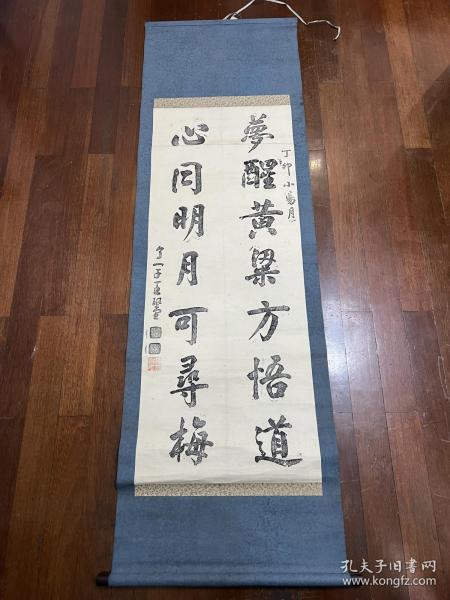 丁卯小陽月
夢醒黃梁方悟道
心同明月可尋梅
孔夫子旧书网
www.kongfz.com